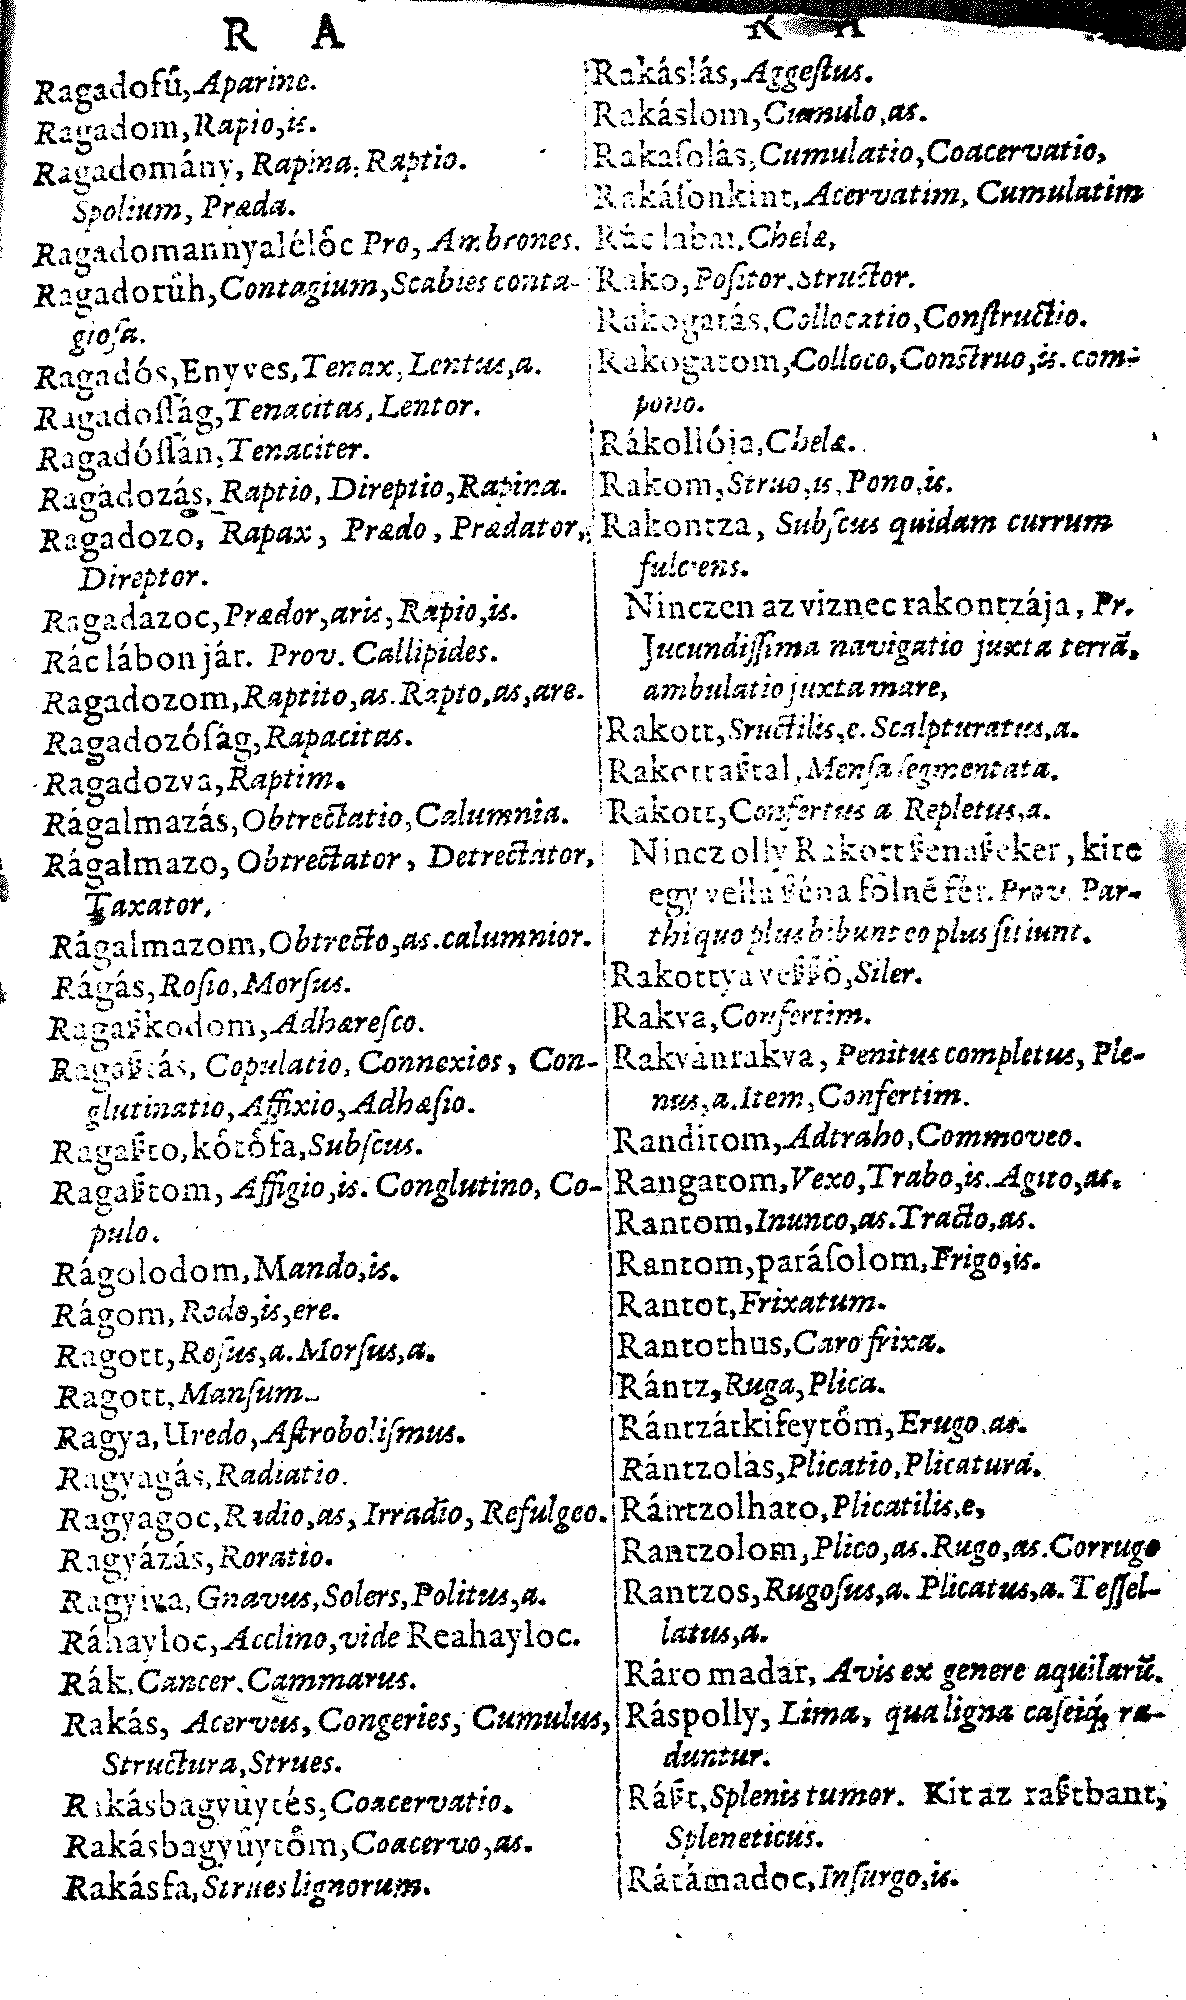 R A
Ragadofű, Aparine.
Ragadom, Rapio, is.
Ragadomány, Rapina, Raptio.
Spolium, Præda.
Ragadomannyalélőc Pro, Ambrones.
Ragadorűh, Contagium, Scabies conta-
gioſa.
Ragadós, Enyves, Tenax, Lentus, a.
Ragadoſſág, Tenacitas, Lentor.
Ragadóſſán, Tenaciter.
Ragadozás, Raptio, Direptio, Rapina.
Ragadozo, Rapax, Prædo, Prædator,
Direptor.
Ragadazoc, Prædor, aris, Rapio, is.
Rác lábon jár. Prov. Callipides.
Ragadozom, Raptito, as. Rapto, as, are.
Ragadozóſág, Rapacitas.
Ragadozva, Raptim.
Rágalmazás, Obtrectatio, Calumnia.
Rágalmazo, Obtrectator, Detrectator,
Taxator,
Rágalmazom, Obtrecto, as. calumnior.
Rágás, Roſio, Morſus.
Ragaſzkodom, Adhæreſco.
Ragaſztás, Copulatio, Connexios, Con-
glutinatio, Affixio, Adhæſio.
Ragaſzto, kőtőfa, Subſcus.
Ragaſztom, Affigio, is. Conglutino, Co-
pulo.
Rágolodom, Mando, is.
Rágom, Rodo, is, ere.
Ragott, Roſus, a. Morſus, a.
Ragott, Manſum.
Ragya, Uredo, Aſtroboliſmus.
Ragyagás, Radiatio.
Ragyagoc, Radio, as, Irradio, Refulgeo.
Ragyázás, Roratio.
Ragyiva, Gnavus, Solers, Politus, a.
Ráhayloc, Acclino, vide Reahayloc.
Rák, Cancer, Cammarus.
Rakás, Acervus, Congeries, Cumulus,
Structura, Strues.
Rakásbagyűytés, Coacervatio.
Rakásbagyűytőm, Coacervo, as.
Rakásfa, Strues lignorum.
R A
Rakáslás, Aggeſtus.
Rakáslom, Cumulo, as.
Rakaſolás, Cumulatio, Coacervatio,
Rakáſonkint, Acervatim, Cumulatim
Rác labai, Chelæ,
Rako, Poſitor, Structor.
Rakogatás, Collocatio, Conſtructio.
Rakogatom, Colloco, Construo, is. com-
pono.
Rákollóia, Chelæ.
Rakom, Struo, is, Pono, is.
Rakontza, Subſcus quidam currum
fulciens.
Ninczen az viznec rakontzája, Pr.
Jucundiſſima navigatio juxta terrã.
ambulatio juxta mare,
Rakott, Sructilis, e. Scalpturatus, a.
Rakottaſztal, Menſa ſegmentata.
Rakott, Confertus a Repletus, a.
Nincz olly Rakott ſzenaſzeker, kire
egy vella ſzéna főlnē fér. Prov. Par-
thi quo plus bibunt eo plus ſitiunt.
Rakottya veſzſző, Siler.
Rakva, Confertim.
Rakvánrakva, Penitus completus, Ple-
nus, a. Item, Confertim.
Randítom, Adtraho, Commoveo.
Rangatom, Vexo, Trabo, is. Agito, as.
Rantom, Inunco, as. Tracto, as.
Rantom, paráſolom, Frigo, is.
Rantot, Frixatum.
Rantothus, Caro frixa.
Rántz, Ruga, Plica.
Rántzátkifeytőm, Erugo, as.
Rántzolás, Plicatio, Plicatura.
Rántzolhato, Plicatilis, e,
Rantzolom, Plico, as. Rugo, as. Corrugo
Rantzos, Rugoſus, a. Plicatus, a. Teſſel-
latus, a.
Ráro madár, Avis ex genere aquilarũ.
Ráspolly, Lima, qua ligna caſeiq́, ra-
duntur.
Ráſzt, Splenis tumor. Kit az raſztbant,
Spleneticus.
Rátámadoc, Inſurgo, is.